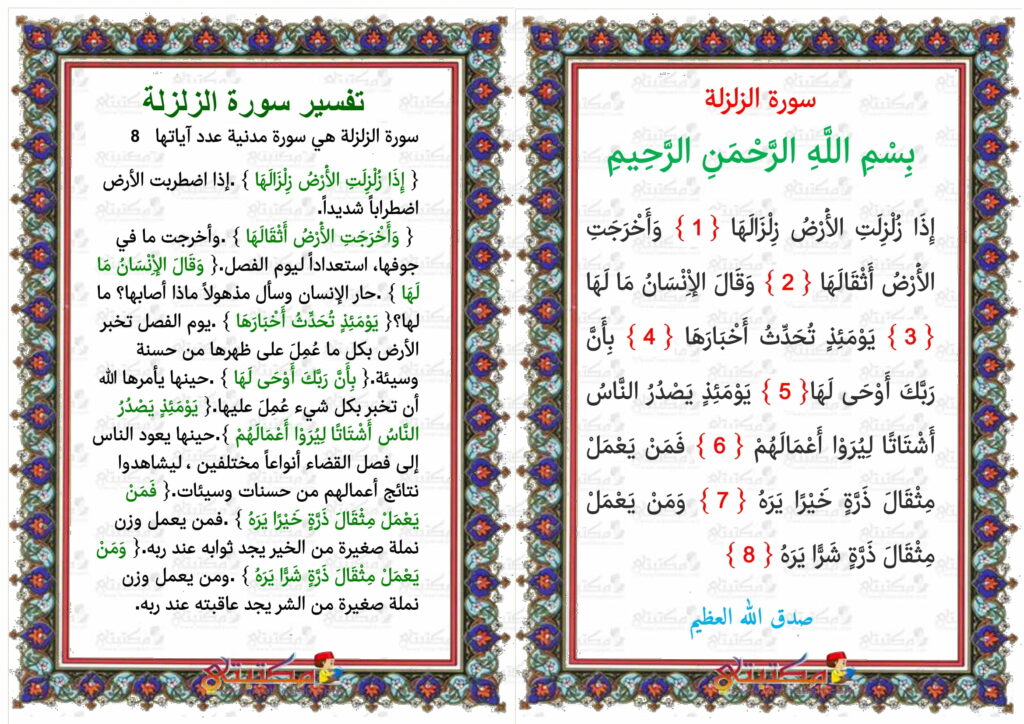 سورة الزلزلة
بِسْمِ اللَّهِ الرَّحْمَنِ الرَّحِيمِ
إِذَا زُلْزِلَتِ الأَرْضُ زِلْزَالَهَا { 1 } وَأَخْرَجَتِ
الأَرْضُ أَثْقَالَهَا { 2 } وَقَالَ الإِنْسَانُ مَا لَهَا
{ 3 } يَوْمَئِذٍ تُحَدِّثُ أَخْبَارَهَا { 4 } بِأَنَّ
رَبَّكَ أَوْحَى لَهَا{ 5 } يَوْمَئِذٍ يَصْدُرُ النَّاسُ
أَشْتَاتًا لِيُرَوْا أَعْمَالَهُمْ { 6 } فَمَنْ يَعْمَلْ
مِثْقَالَ ذَرَّةٍ خَيْرًا يَرَهُ { 7 } وَمَنْ يَعْمَلْ
مِثْقَالَ ذَرَّةٍ شَرًّا يَرَهُ { 8 }
صدق الله العظيم
مكتبتي
تفسير سورة الزلزلة
سورة الزلزلة هي سورة مدنية عدد آياتها 8
{ إِذَا زُلْزِلَتِ الأَرْضُ زِلْزَالَهَا } .إذا اضطربت الأرض
اضطراباً شديداً.
{ وَأَخْرَجَتِ الأَرْضُ أَثْقَالَهَا } .وأخرجت ما في
جوفها، استعداداً ليوم الفصل.{ وَقَالَ الإِنْسَانُ مَا
لَهَا } .حار الإنسان وسأل مذهولاً ماذا أصابها؟ ما
لها؟{ يَوْمَئِذٍ تُحَدِّثُ أَخْبَارَهَا } .يوم الفصل تخبر
الأرض بكل ما عُمِلَ على ظهرها من حسنة
وسيئة.{ بِأَنَّ رَبَّكَ أَوْحَى لَهَا } .حينها يأمرها الله
أن تخبر بكل شيء عُمِلَ عليها.{ يَوْمَئِذٍ يَصْدُرُ
النَّاسُ أَشْتَاتًا لِيُرَوْا أَعْمَالَهُمْ }.حينها يعود الناس
إلى فصل القضاء أنواعاً مختلفين ، ليشاهدوا
نتائج أعمالهم من حسنات وسيئات.{ فَمَنْ
يَعْمَلْ مِثْقَالَ ذَرَّةٍ خَيْرًا يَرَهُ } .فمن يعمل وزن
نملة صغيرة من الخير يجد ثوابه عند ربه.{ وَمَنْ
يَعْمَلْ مِثْقَالَ ذَرَّةٍ شَرًّا يَرَهُ } .ومن يعمل وزن
نملة صغيرة من الشر يجد عاقبته عند ربه.
مكتبتي